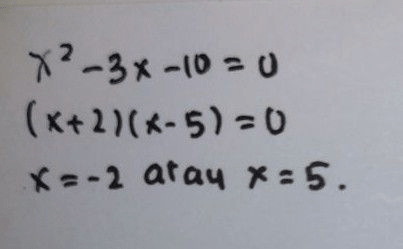 x² - 3x - 10 = 0
(x+2)(x-5) = 0
x = -2 atau x = 5.